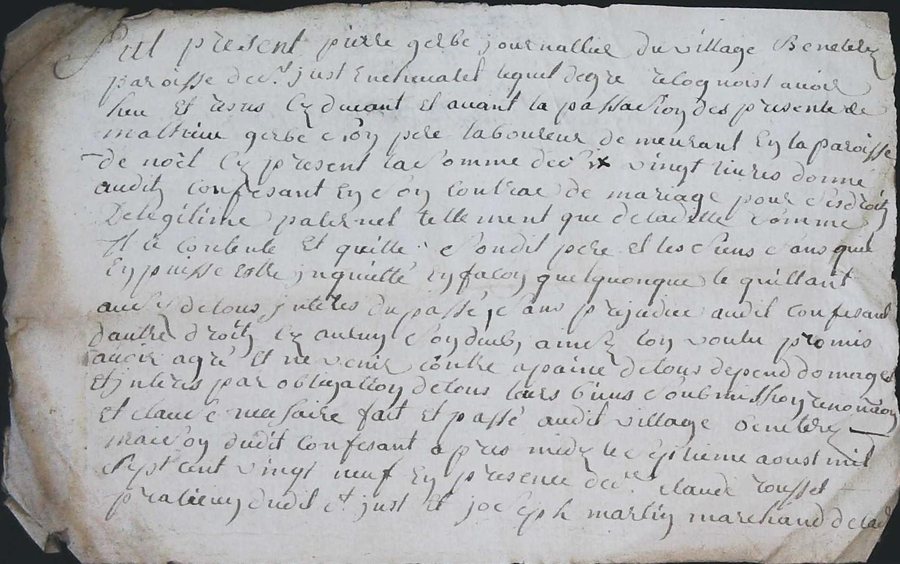 Fut present pierre gerbe journallier du village Benetery
paroisse de st just Enchevalet lequel de gre recognoist avoir
heu et resus cy devant et avant la passation des presente de
mattieu gerbe son pere laboureur demeurant En la paroisse
de noël Cy present la somme de six vingt livres donné
audit confesant En son contrac de mariage pour ses droitz
De legitime paternel tellement que de ladite somme
Il ce contente et quitte sondit pere et les siens sans quil
En puisse estre inquietté En façon quelquonque le quittant
aussy de tous interes du passé, sans prejudice audit confesant
dautre droitz Cy aucun son dubz ainsy lon voulu promis
avoir agré Et ne venir contre a paine de tous depend domages
Et interes par obligation de tous leurs biens soubmission renontion
Et clause necesaire fait et passé audit village Benetery
maison dudit confesant apres midy le septieme aoust mil
sept cent vingt neuf En presence de sr claude rousset
praticien dudit st just Et joseph martin marchand de